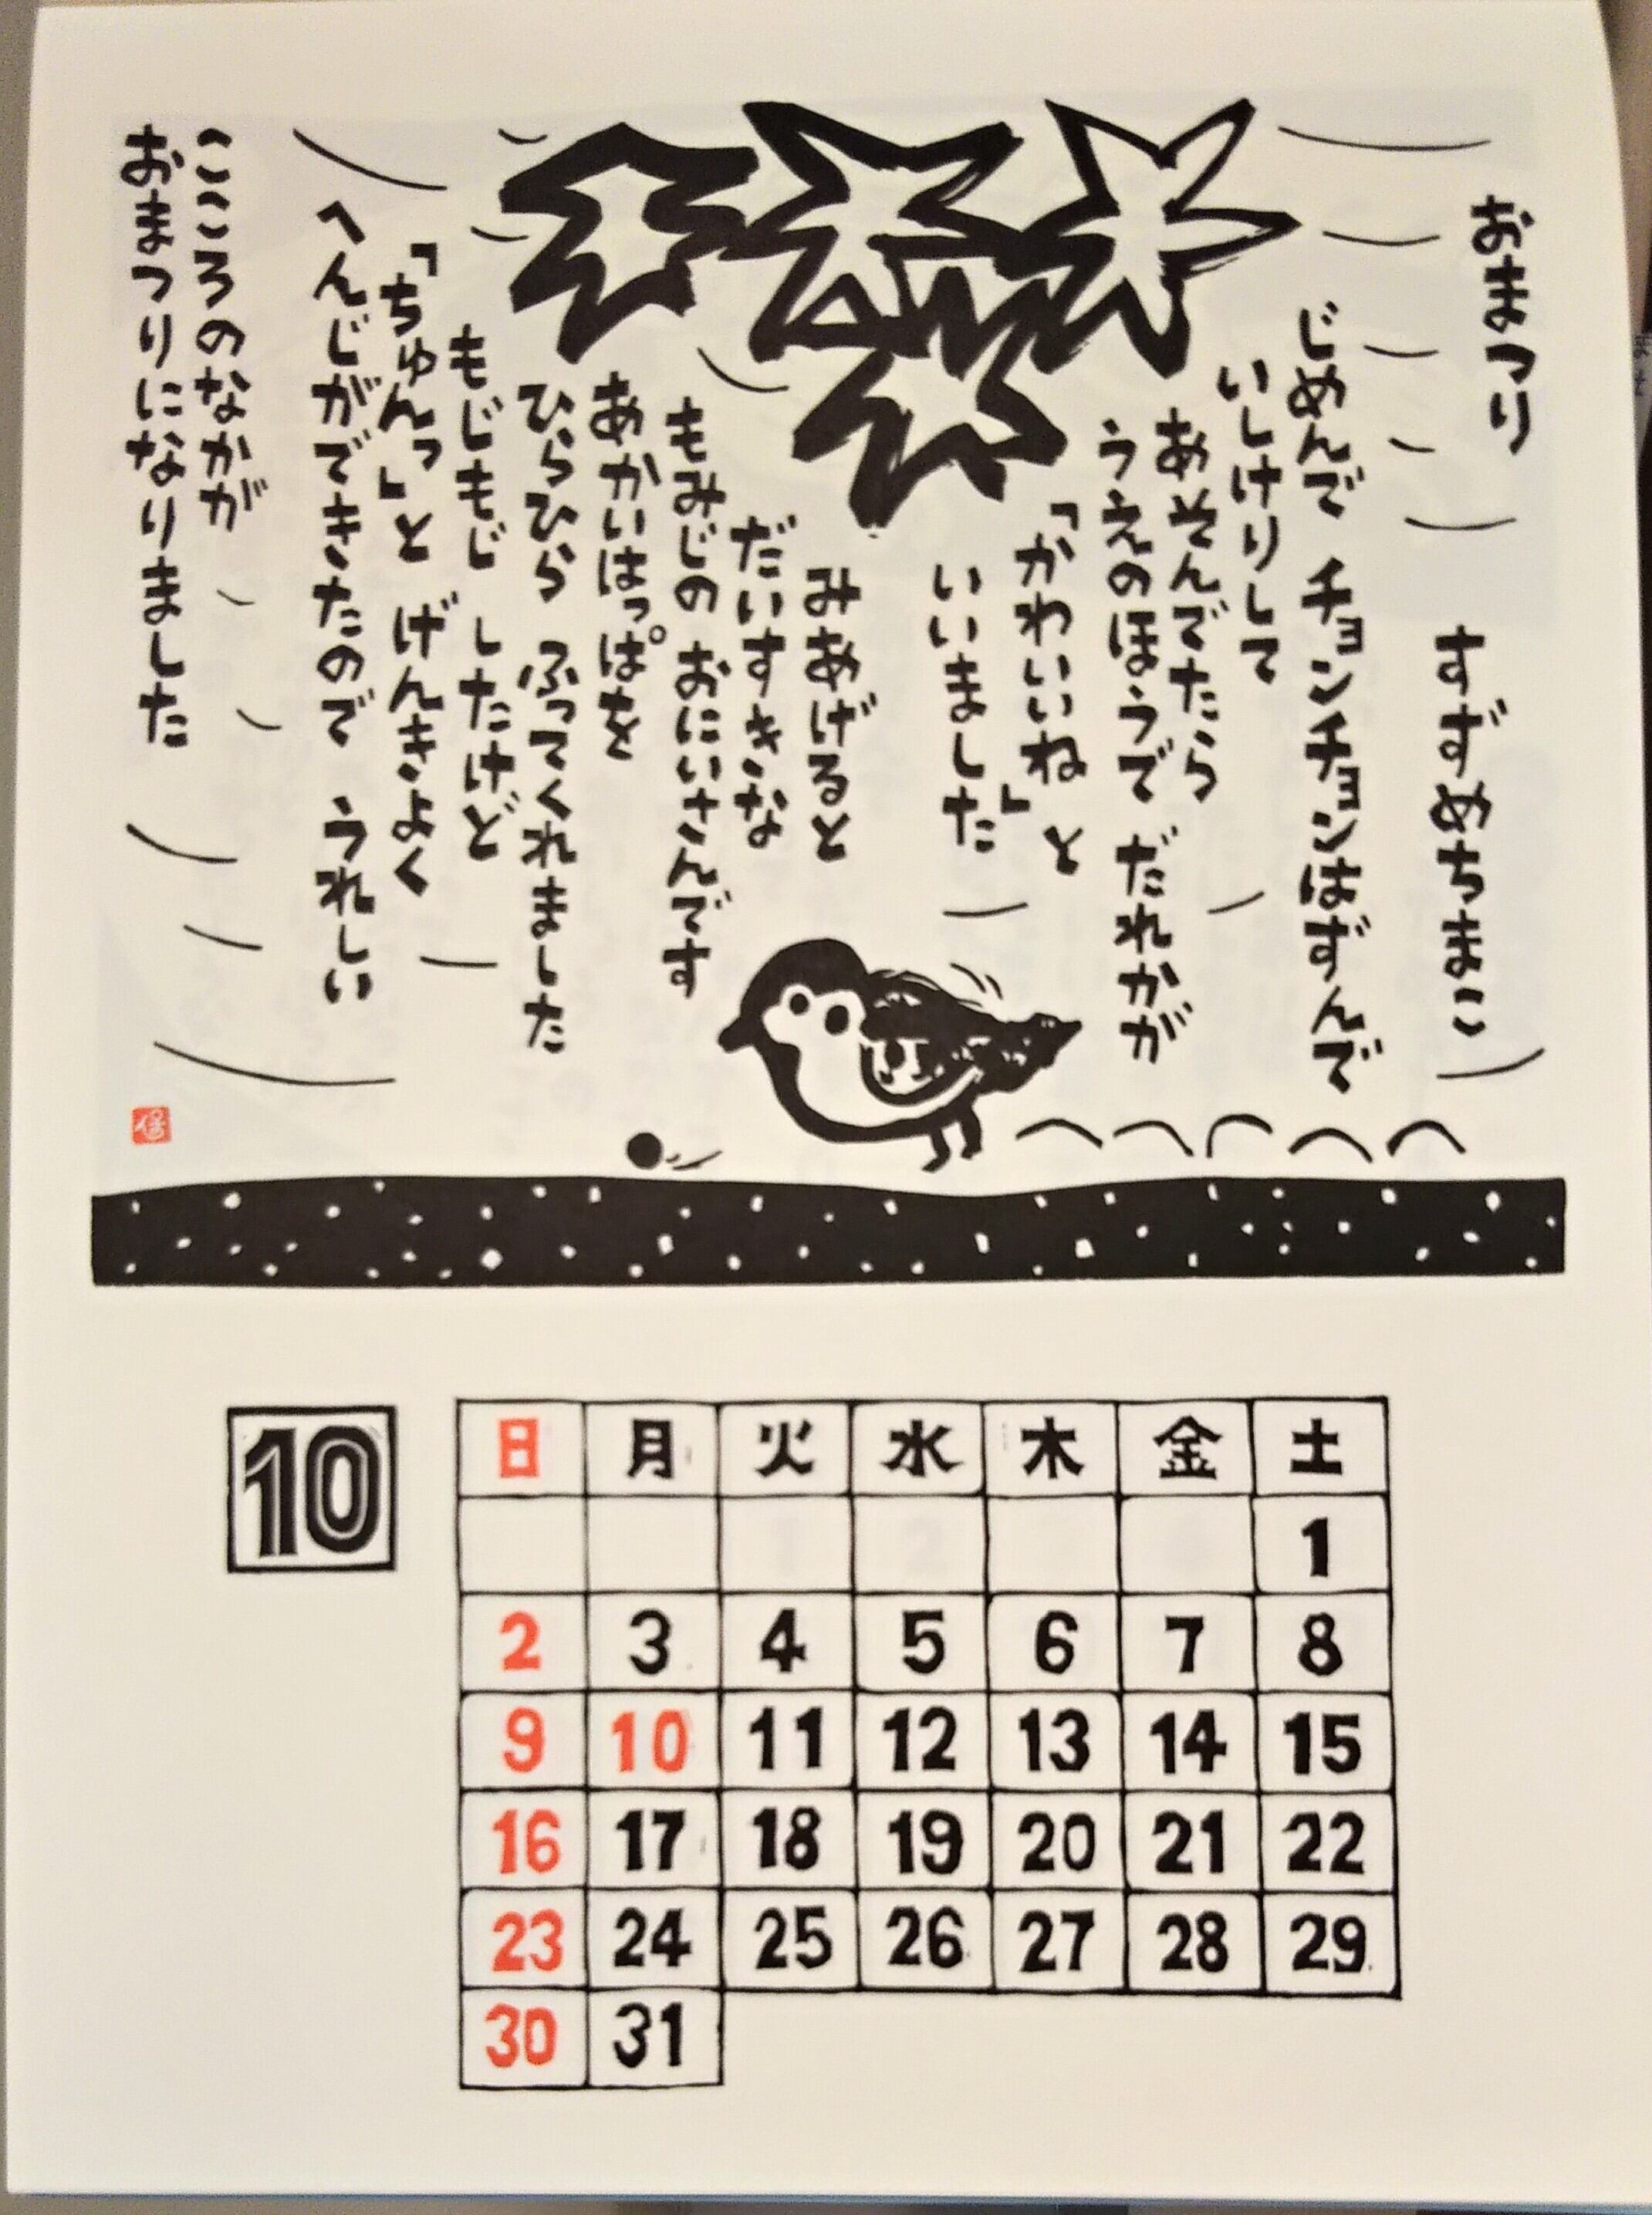 おまつり
すずめちまこ
じめんで チョンチョンはずんで
いしけりして
あそんでたら
うえのほうで だれかが
「かわいいね」と
いいました
みあげると
だいすきな
もみじの おにいさんです
あかいはっぱを
ひらひら ふってくれました
もじもじ したけど
「ちゅんっ」と げんきよく
へんじができたので うれしい
こころのなかが
おまつりになりました
10
日 月 火 水 木 金 土
1
2 3 4 5 6 7 8
9 10 11 12 13 14 15
16 17 18 19 20 21 22
23 24 25 26 27 28 29
30 31